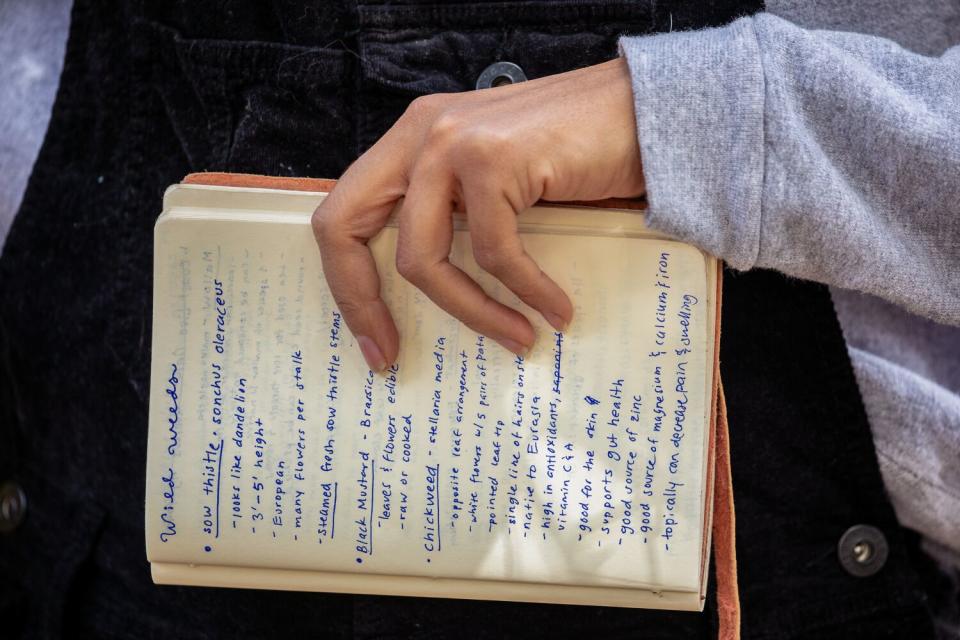 Wild weeds
• sow thistle • sonchus oleraceus
- looks like dandelion
- 3'-5' height
- European
- many flowers per stalk
- steamed fresh sow thistle stems
• Black Mustard - Brassica
- leaves & flowers edible
- raw or cooked
• Chickweed - stellaria media
- opposite leaf arrangement
- white flowers w/ 5 pairs of
- pointed leaf tip
- single line of hairs on
- native to Eurasia
- high in antioxidants,
vitamin C & A
- good for the skin
- supports gut health
- good source of zinc
- good source of magnesium & calcium & iron
- topically can decrease pain & swelling